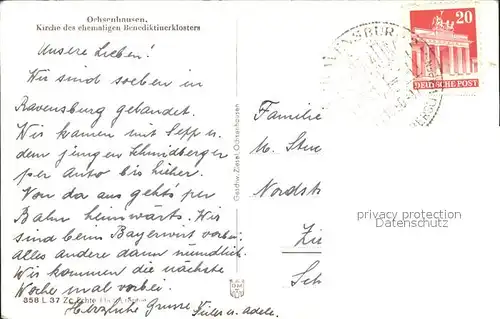 Ochsenhausen.
Kirche des ehemaligen Benediktinerklosters
Unsere Lieben!
Wir sind soeben in
Ravensburg gelandet.
Wir kamen mit Sepp u.
dem jungen Schmidberger
per Auto bis hieher.
Von da aus geht's per
Bahn heimwärts. Wir
sind beim Bayerwirt vorbei.
alles andere dann mündlich.
Wir kommen die nächste
Woche mal vorbei.
Herzliche Grüsse
u. Adele.
358 L 37 Echte
Geschw. Ziesel, Ochsenhausen
RAVENSBURG
20
DEUTSCHE POST
Familie
M.
Nordst
privacy protection
Datenschutz